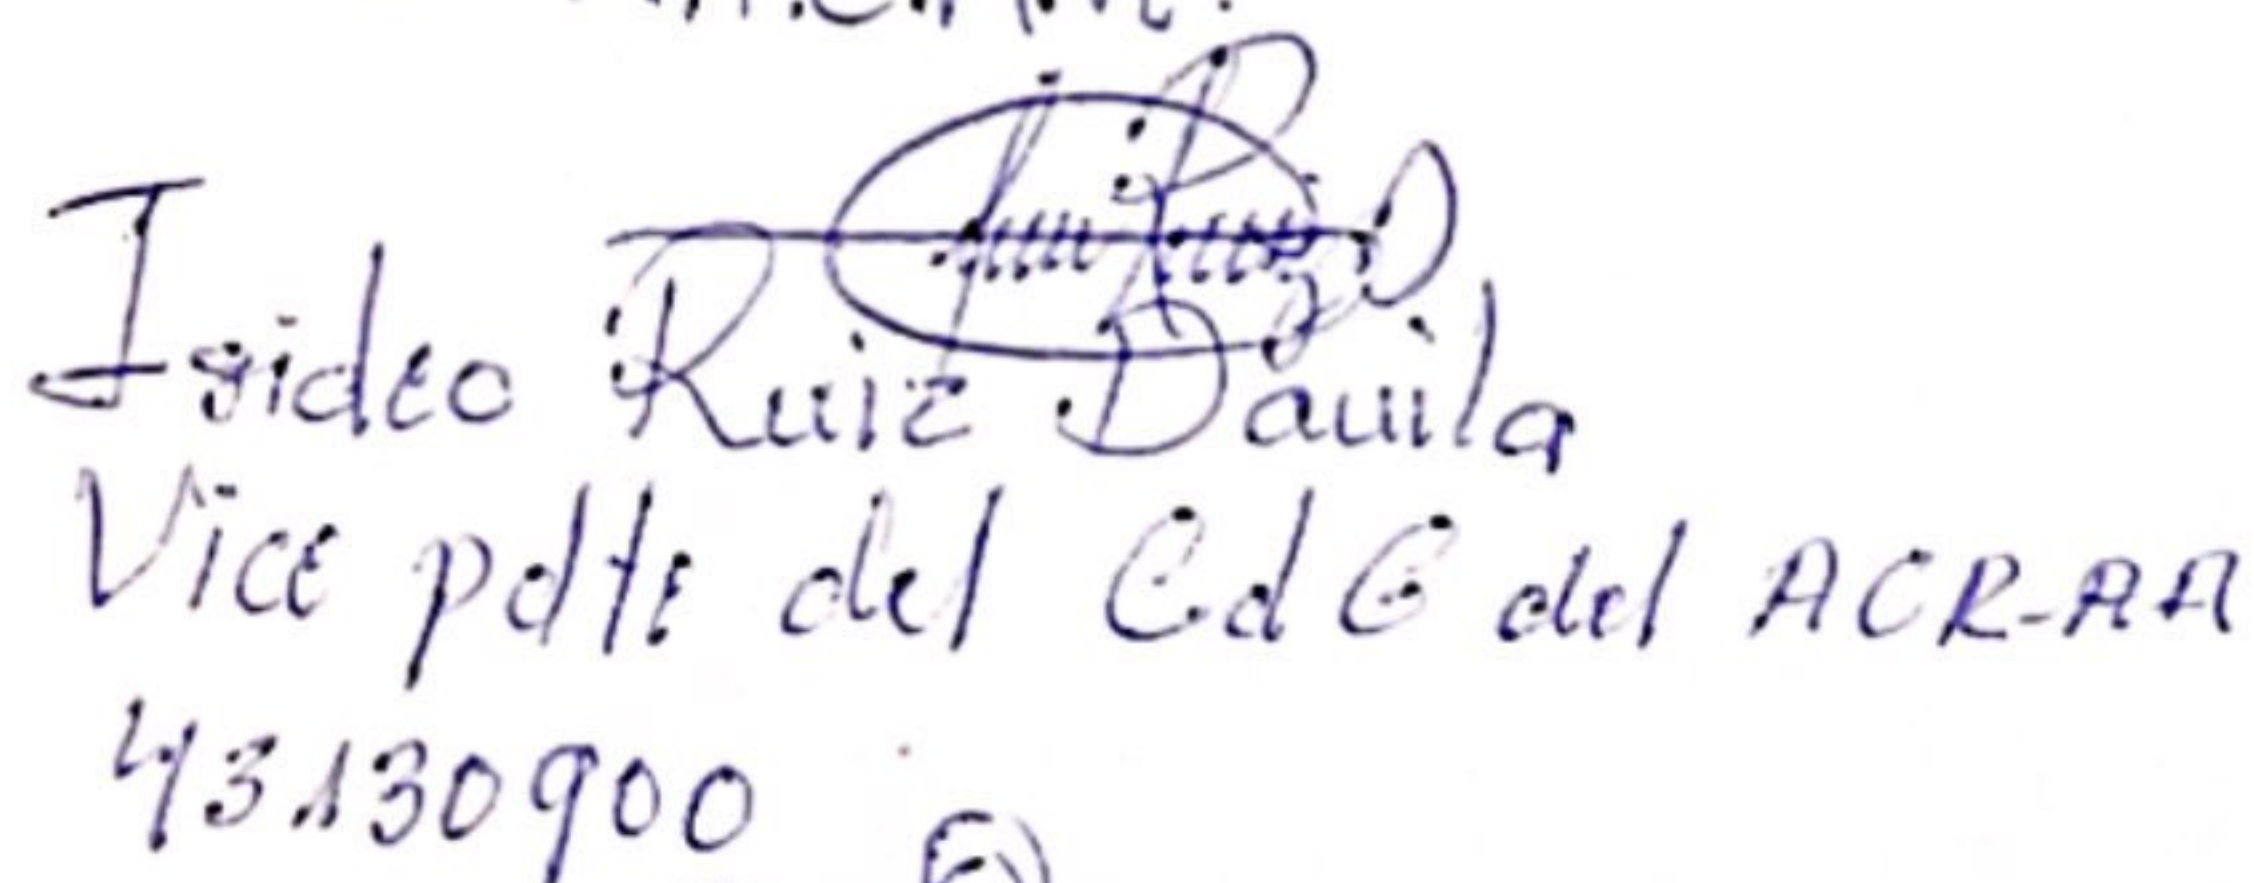 Isidro Ruiz Dávila
Vice pdte del CdG del ACR-AA
43130900